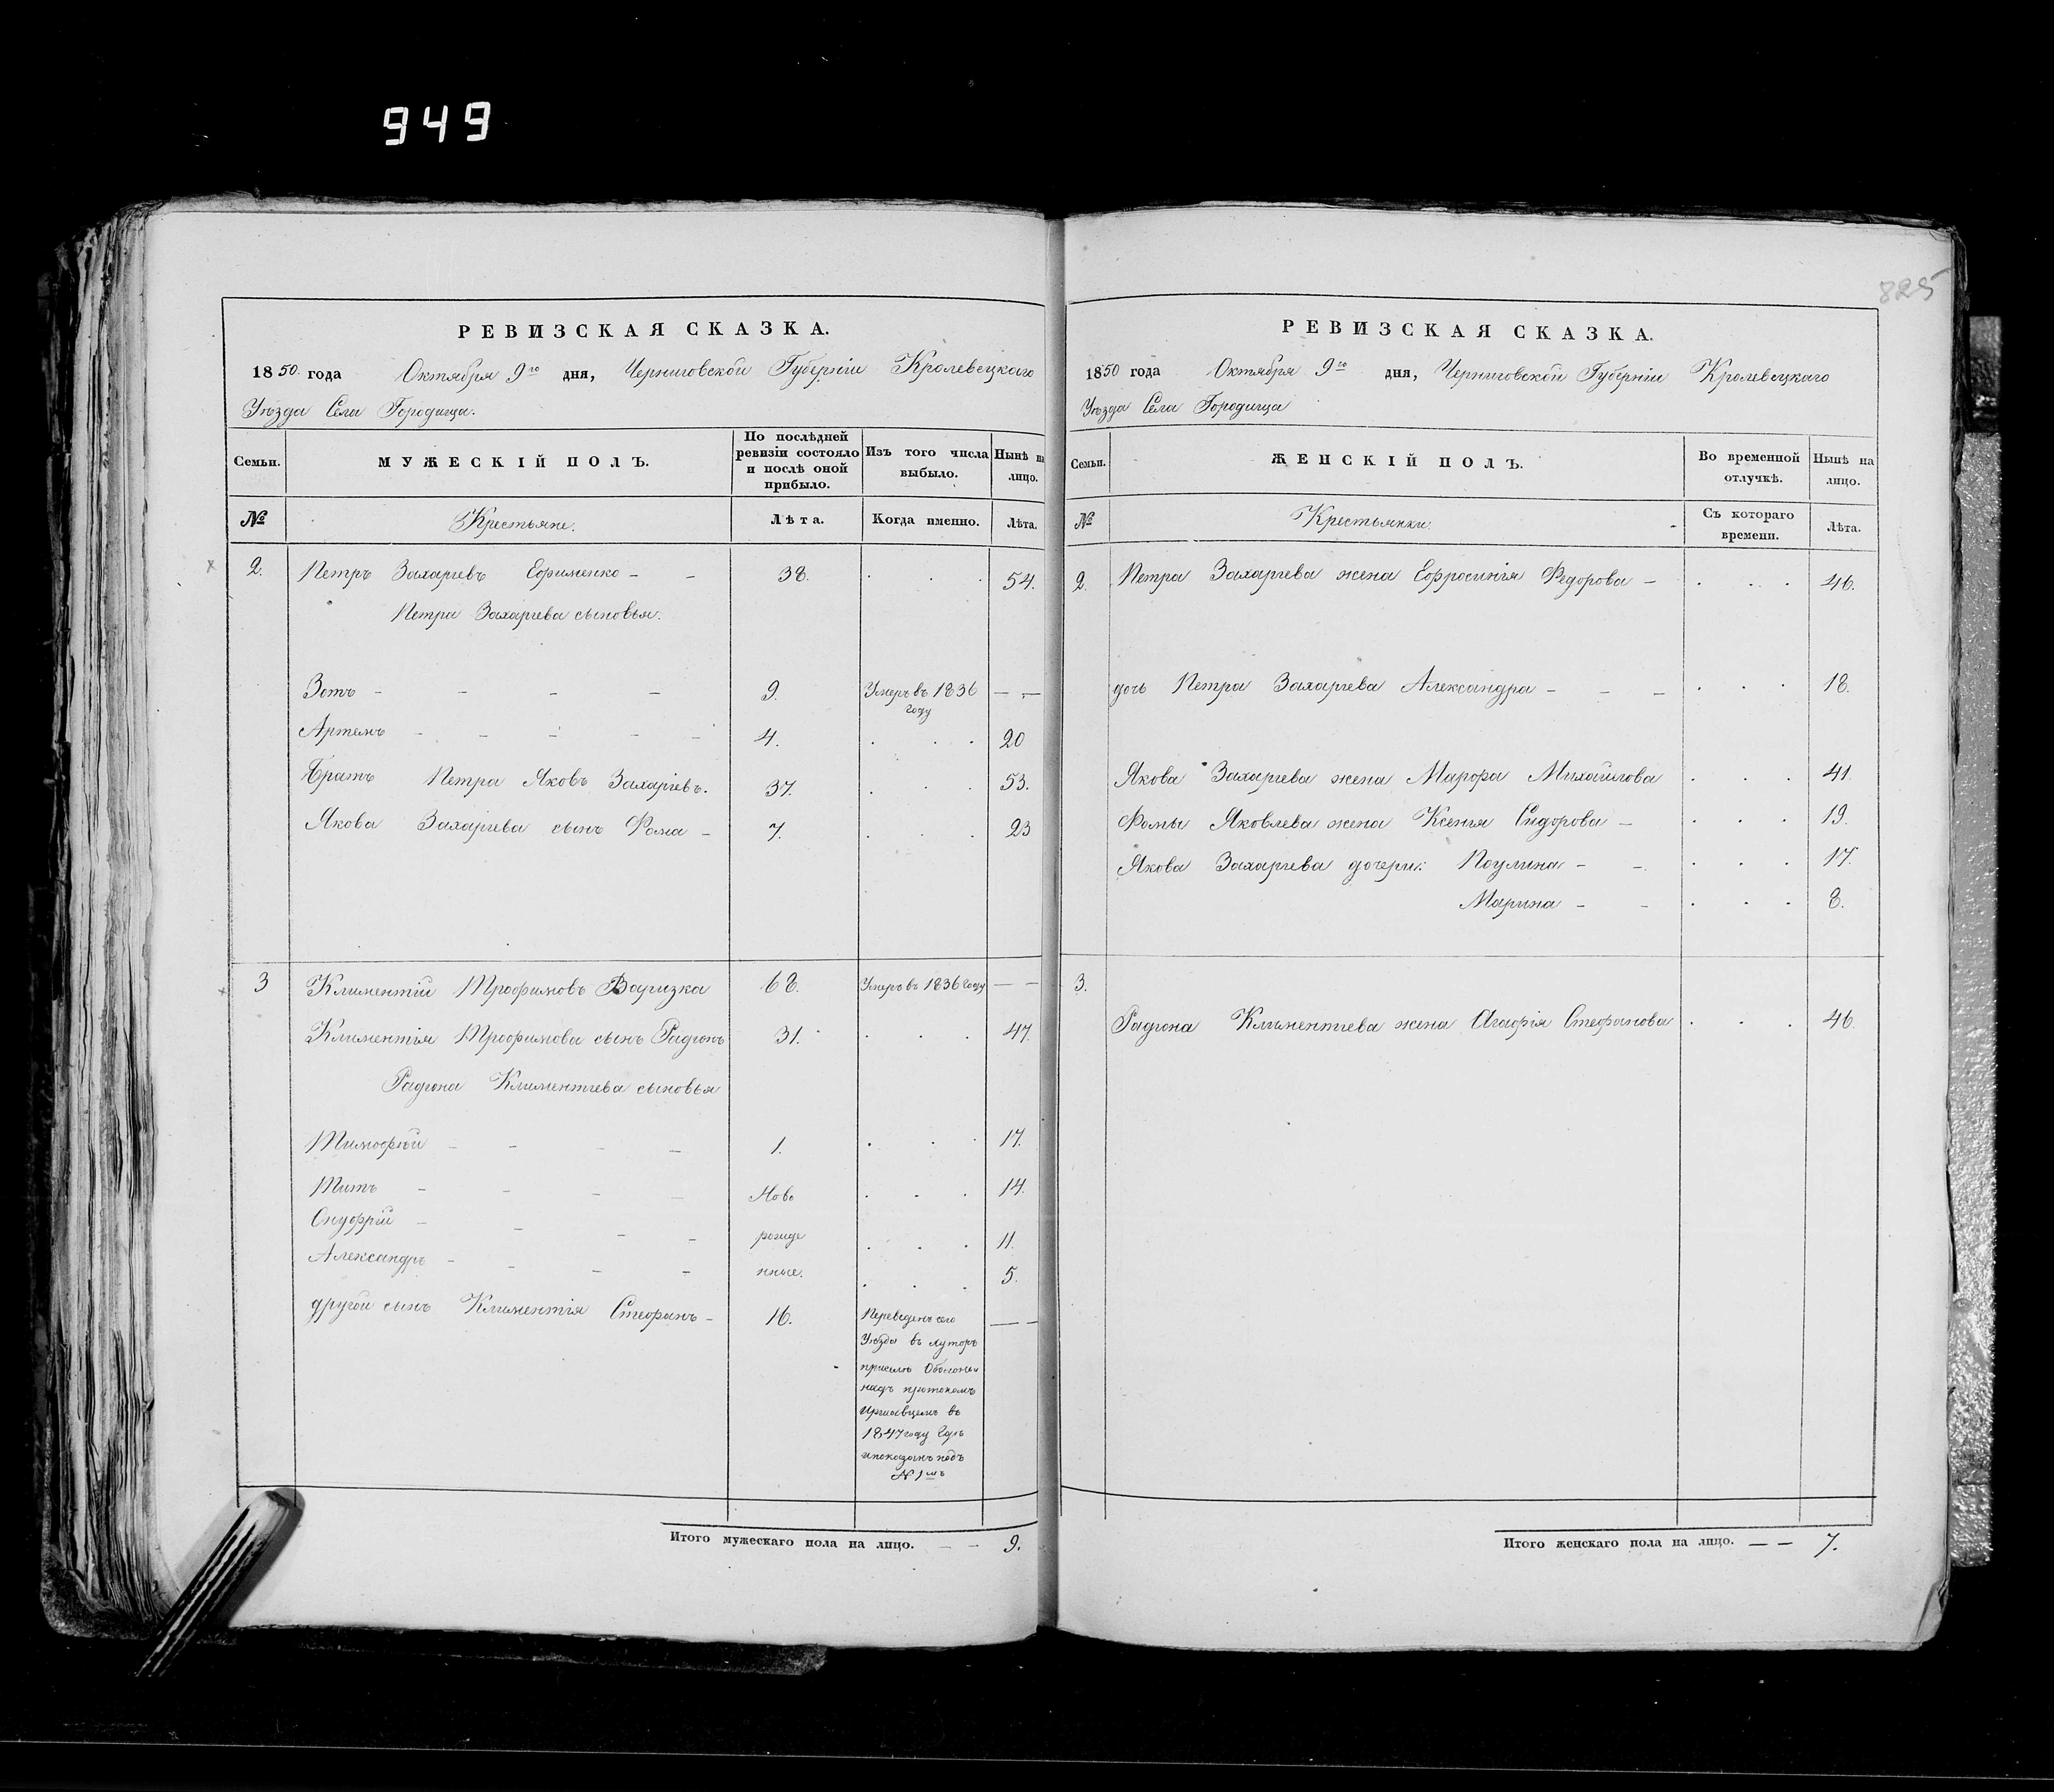 949
825
РЕВИЗСКАЯ СКАЗКА.
1850 года Октября 9го дня, Черниговской Губерніи Кролевецкаго
Уѣзда Села Городища.
Семьи. МУЖЕСКІЙ ПОЛЪ. По послѣдней ревизіи состояло и послѣ оной прибыло. Изъ того числа выбыло. Нынѣ на лицо.
№ Крестьяне. Лѣта. Когда именно. Лѣта.
2. Петръ Захаріевъ Ефименко - - 38. . . . 54.
Петра Захаріева сыновья.
Зотъ - - - - 9. Умеръ въ 1836 году — —
Артемъ - - - - - 4. . . . 20
Братъ Петра Яковъ Захаріевъ. 37. . . . 53.
Якова Захаріева сынъ Фома - 7. . . . 23
3 Климентій Трофимовъ 68. Умеръ въ 1836 году — —
Климентія Трофимова сынъ Радіонъ 31. . . . 47.
Радіона Климентіева сыновья
Тимофѣй - - - - 1. . . . 17.
Титъ - - - - Ново . . . 14.
Онуфрій - - - - рожде . . . 11.
Александръ - - - - нные. . . . 5.
другой сынъ Климентія Стефанъ - 16. Переведенъ сего — —
Уѣзда въ хуторъ
при селѣ
надъ протокомъ
въ
1847 году гдѣ
и показанъ подъ
№ 1мъ
Итого мужескаго пола на лицо. — — 9.
РЕВИЗСКАЯ СКАЗКА.
1850 года Октября 9го дня, Черниговской Губерніи Кролевецкаго
Уѣзда Села Городища
Семьи. ЖЕНСКІЙ ПОЛЪ. Во временной отлучкѣ. Нынѣ на лицо.
№ Крестьянки. Съ котораго времени. Лѣта.
2. Петра Захаріева жена Ефросинія Федорова - . . . 46.
дочь Петра Захаріева Александра - - - . . . 18.
Якова Захаріева жена Марфа Михайлова . . . 41.
Фомы Яковлева жена Ксенія Сидорова - . . . 19.
Якова Захаріева дочери: Поулина - - . . . 17.
Марина - - . . . 8.
3.
Радіона Климентіева жена Агафія Стефанова . . . 46.
Итого женскаго пола на лицо. — — 7.